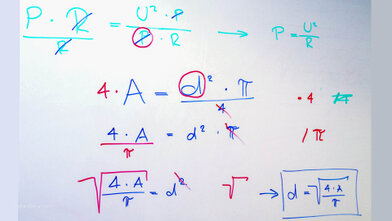 P · R / R = U² · P / P · R → P = U² / R
4 · A = d² · π / 4 · 4
4 · A / π = d² · π / π
√ 4 · A / π = d² √ → d = √ 4 · A / π